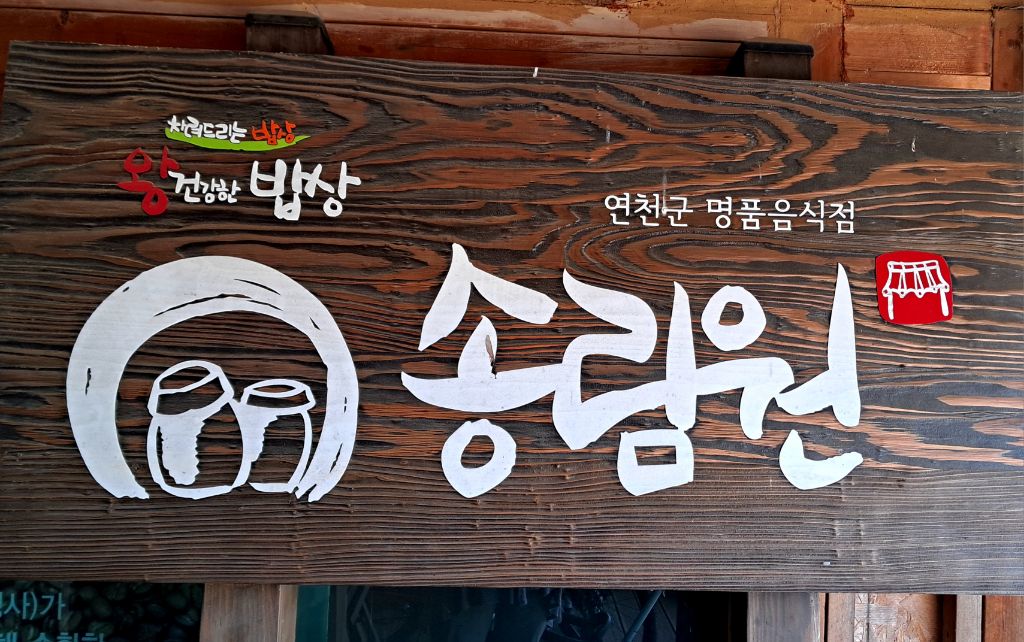 차려드리는 밥상
왕건강한 밥상
연천군 명품음식점
송림원
사)가